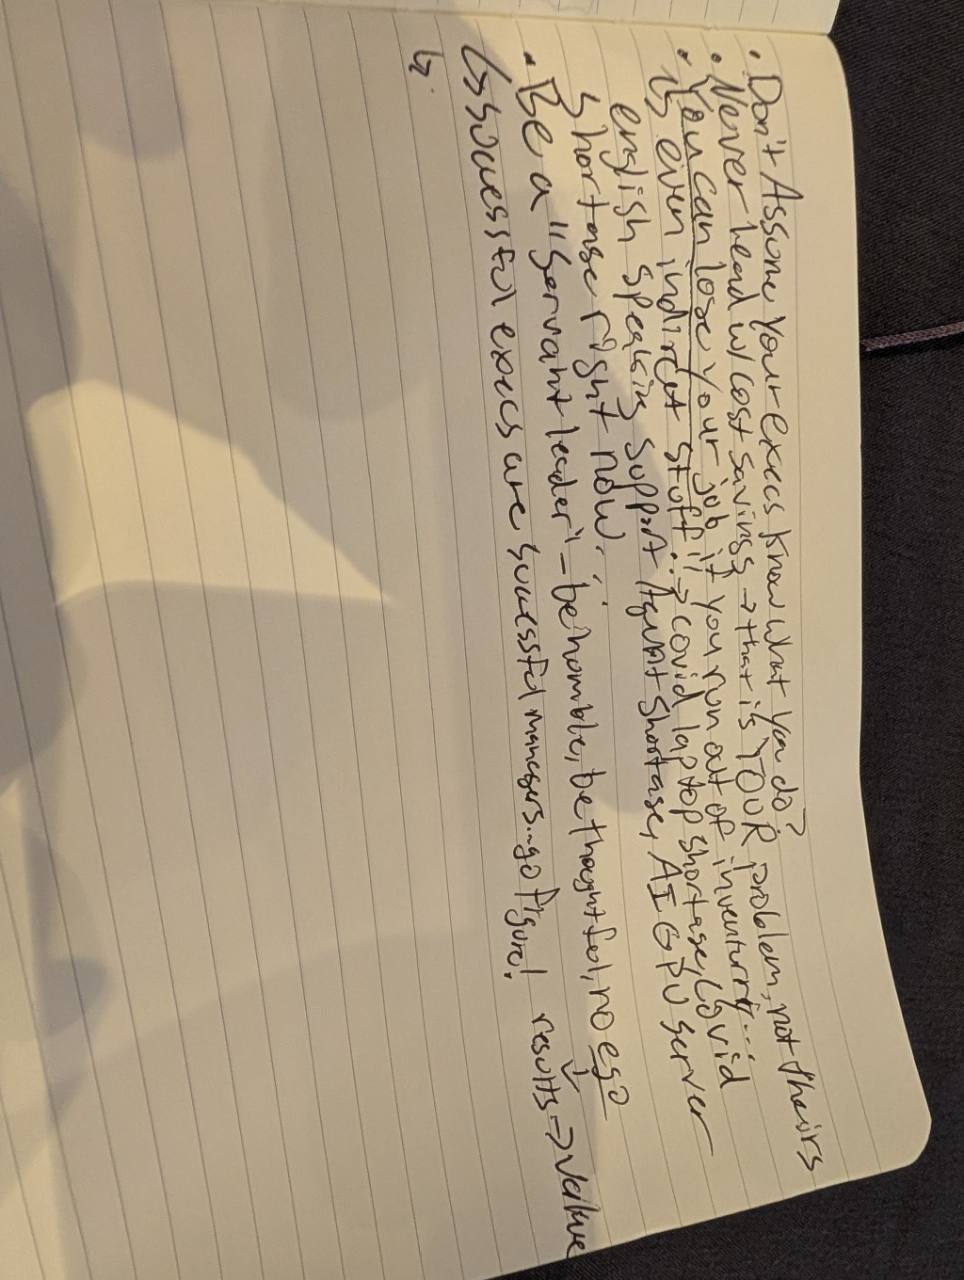 • Don't Assume your execs know what you do?
• Never lead w/ cost savings → that is YOUR problem, not theirs
• You can lose your job if you run out of inventory...
↳ even indirect stuff!! → covid laptop shortage, Covid
english speaking support Agent shortage, AI GPU server
shortage right now.
• Be a "servant leader" - be humble, be thoughtful, no ego
↓
↳ successful execs are successful managers...go figure! results → value
↳.